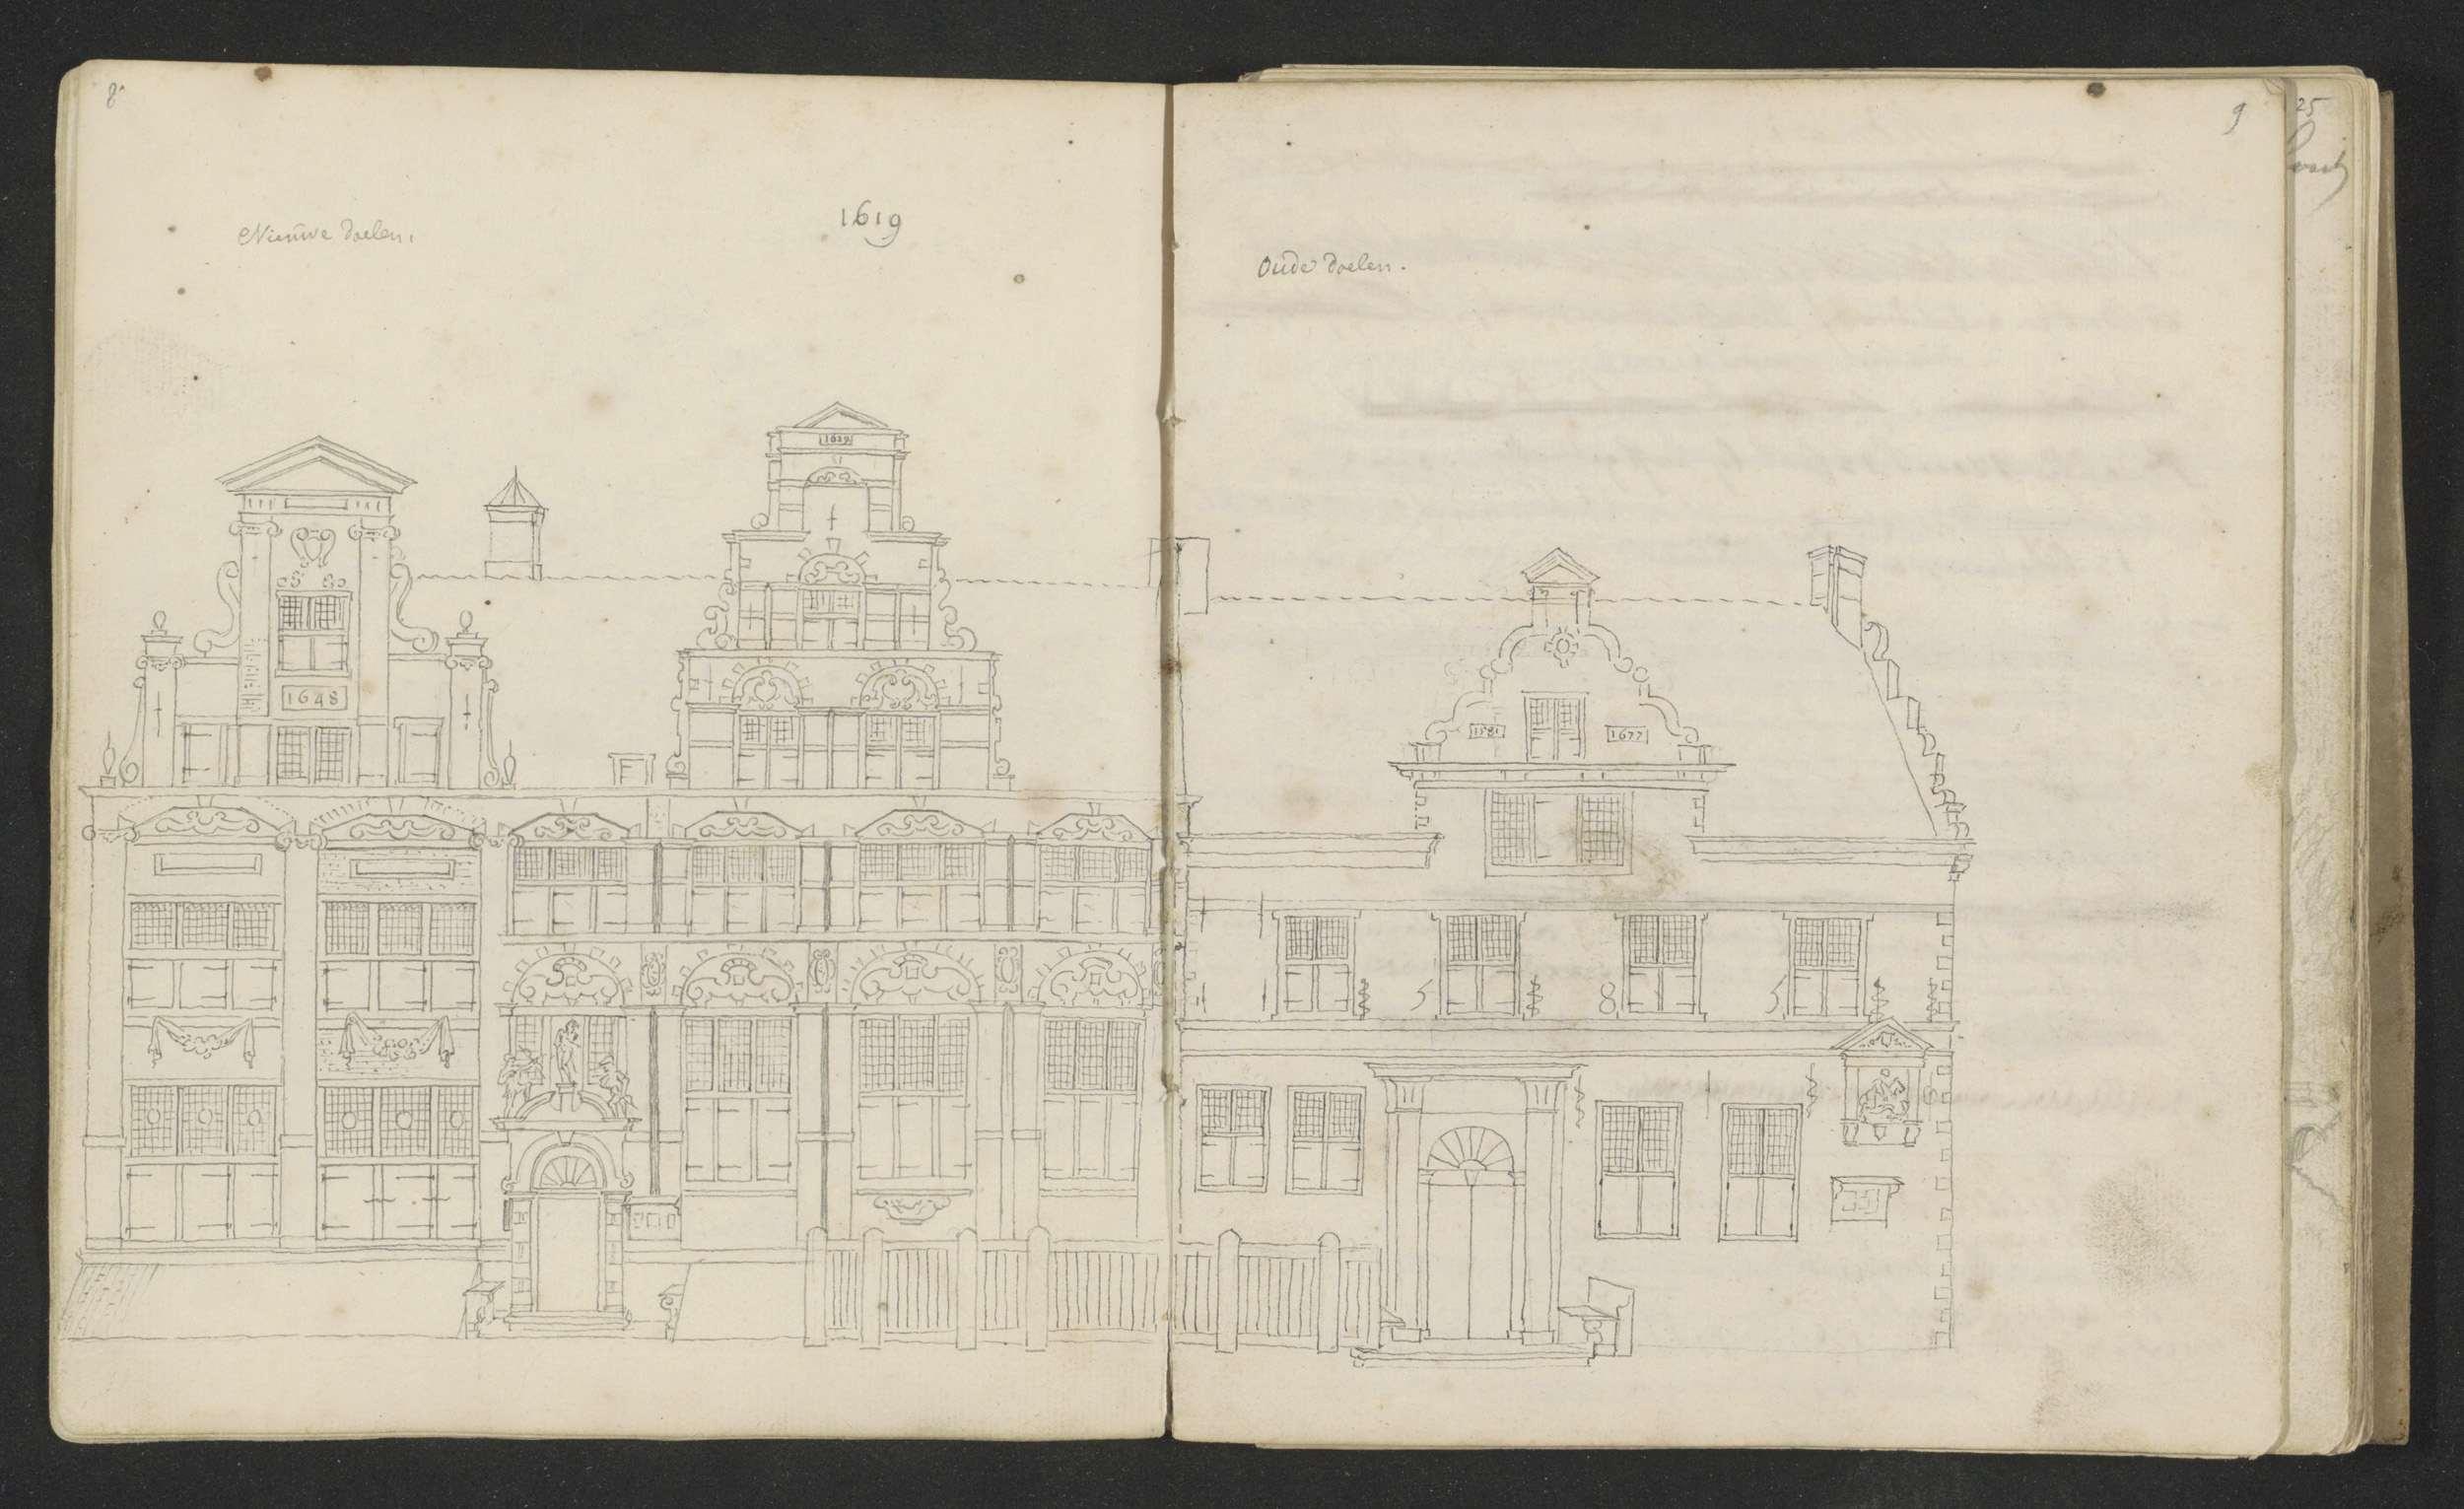 8
Nieuwe doelen.
1619
1619
1648
9
Oude doelen.
1581
1677
1 5 8 5
25